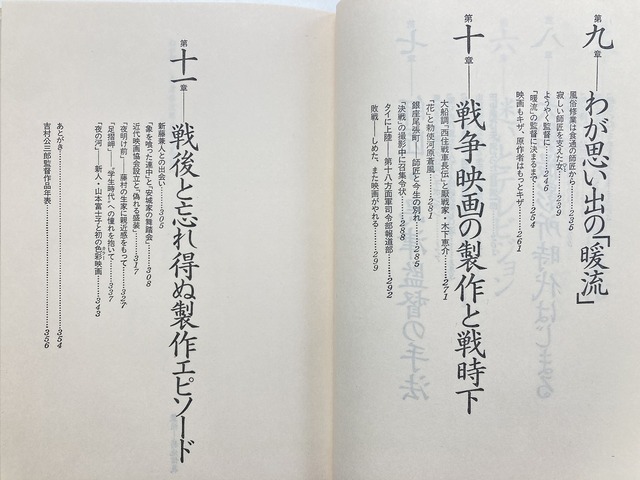 第九章──わが思い出の「暖流」
風俗修業は食通の師匠から……235
寂しい師匠を支えた女……239
ようやく監督に……246
「暖流」の監督に決まるまで……254
映画もキザ、原作者はもっとキザ……261
第十章──戦争映画の製作と戦時下
大船調「西住戦車長伝」と厭戦家・木下恵介……271
「花」と勅使河原蒼風……281
銀座尾張町──師匠と今生の別れ……285
「決戦」の撮影中に召集令状……288
タイに上陸──第十八方面軍司令部報道部……292
敗戦──しめた、また映画がやれる……299
第十一章──戦後と忘れ得ぬ製作エピソード
新藤兼人との出会い……305
「象を喰った連中」と「安城家の舞踏会」……308
近代映画協会設立と、「偽れる盛装」……317
「夜明け前」──藤村の生家に親近感をもって……327
「足摺岬」──「学生時代」への憧れを抱いて……337
「夜の河」──新人・山本富士子と初の色彩映画……343
あとがき……354
吉村公三郎監督作品年表……356